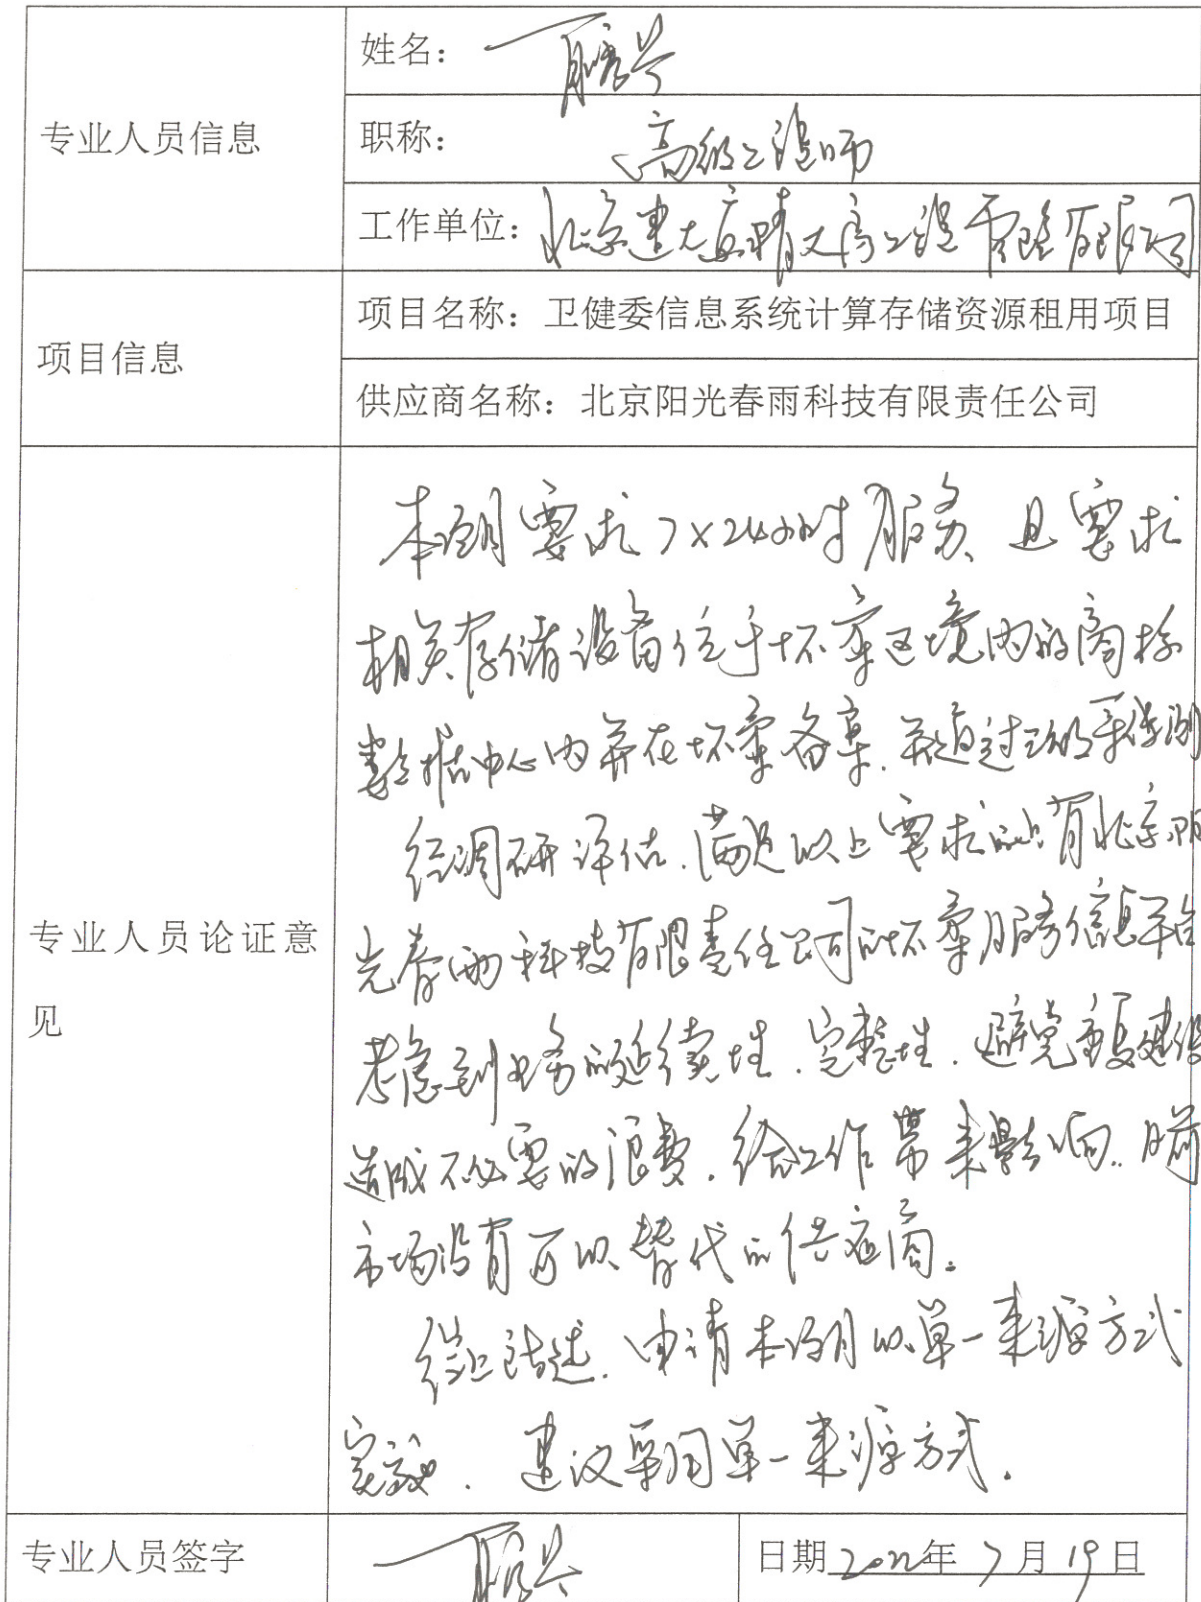 专业人员信息
姓名：
职称：高级工程师
工作单位：北京建大京精大房工程管理有限公司
项目信息
项目名称：卫健委信息系统计算存储资源租用项目
供应商名称：北京阳光春雨科技有限责任公司
专业人员论证意见
本项目要求7×24小时服务、且要求
相关存储设备位于怀柔区境内的高标
数据中心内并在怀柔备案.并通过三级等保测
经调研评估.满足以上要求的只有北京阳
光春雨科技有限责任公司的怀柔服务信息平台
考虑到业务的延续性.完整性.避免重复建设
造成不必要的浪费.给工作带来影响.目前
市场没有可以替代的供应商。
综上所述.申请本项目以单一来源方式
实施.建议采用单一来源方式.
专业人员签字
日期2022年7月19日